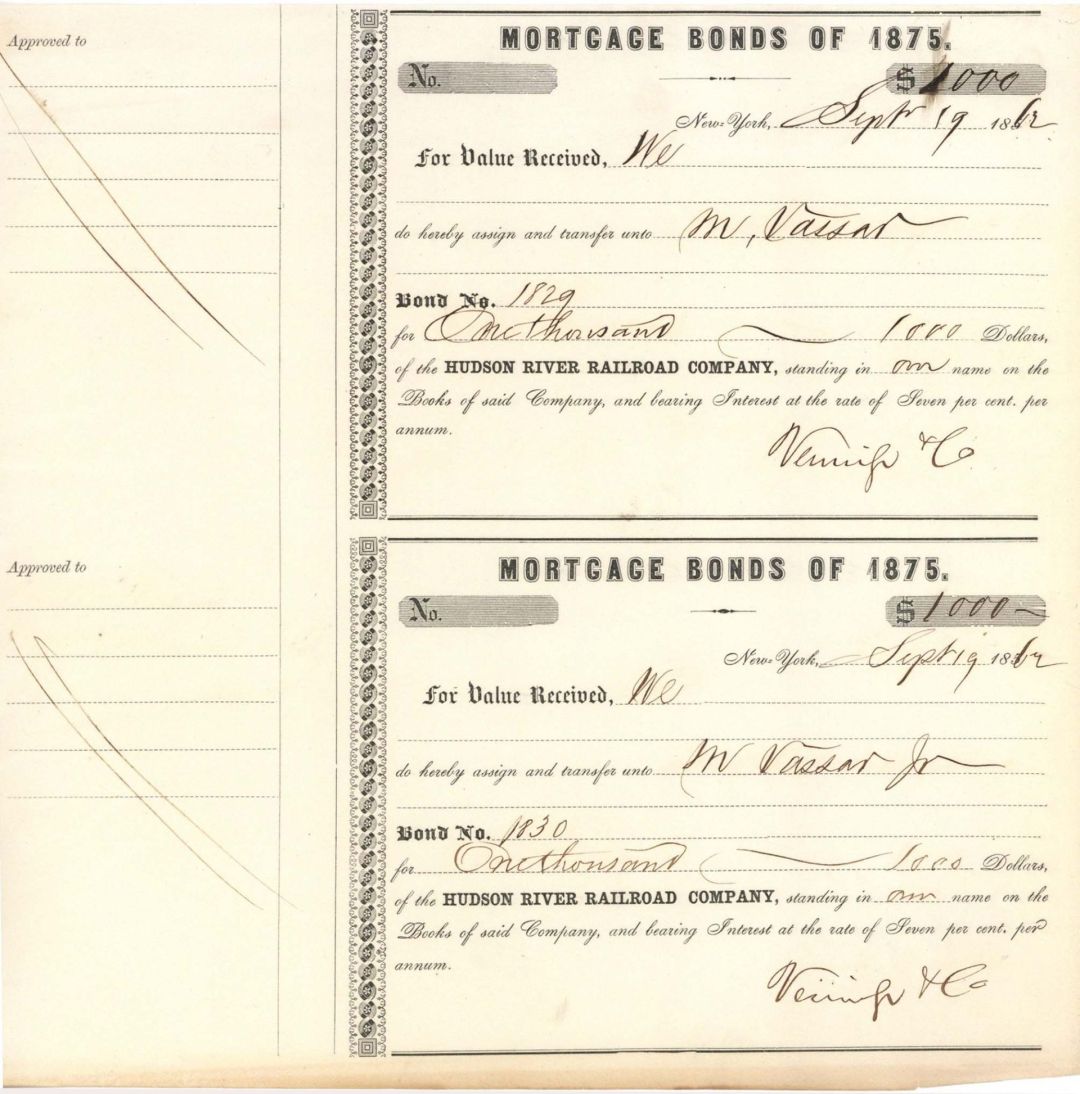 Approved to
MORTGAGE BONDS OF 1875.
No. $ 1000
New-York, Septr 19 1862
For Value Received, We
do hereby assign and transfer unto M, Vassar
Bond No. 1829
for One thousand 1000 Dollars,
of the HUDSON RIVER RAILROAD COMPANY, standing in our name on the
Books of said Company, and bearing Interest at the rate of Seven per cent. per
annum.
& Co
Approved to
MORTGAGE BONDS OF 1875.
No. $ 1000
New-York, Sept 19 1862
For Value Received, We
do hereby assign and transfer unto M Vassar Jr
Bond No. 1830
for One thousand 1000 Dollars,
of the HUDSON RIVER RAILROAD COMPANY, standing in our name on the
Books of said Company, and bearing Interest at the rate of Seven per cent. per
annum.
& Co